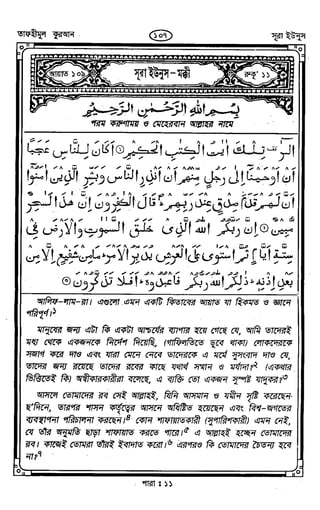 তাফহীমুল কুরআন ১০৭ সূরা ইউনুস
আয়াত ১০৯ সূরা ইউনুস-মক্কী রুকূ' ১১
بِسْمِ اللهِ الرَّحْمٰنِ الرَّحِيْمِ
পরম করুণাময় ও মেহেরবান আল্লাহর নামে
الٓرٰ تِلْكَ اٰيٰتُ الْكِتٰبِ الْحَكِيْمِ ① اَكَانَ لِلنَّاسِ عَجَبًا
اَنْ اَوْحَيْنَا اِلٰى رَجُلٍ مِّنْهُمْ اَنْ اَنْذِرِ النَّاسَ وَبَشِّرِ الَّذِيْنَ اٰمَنُوْا
اَنَّ لَهُمْ قَدَمَ صِدْقٍ عِنْدَ رَبِّهِمْ قَالَ الْكٰفِرُوْنَ اِنَّ هٰذَا لَسٰحِرٌ
مُّبِيْنٌ ② اِنَّ رَبَّكُمُ اللهُ الَّذِيْ خَلَقَ السَّمٰوٰتِ وَالْاَرْضَ فِيْ
سِتَّةِ اَيَّامٍ ثُمَّ اسْتَوٰى عَلَى الْعَرْشِ يُدَبِّرُ الْاَمْرَ مَا مِنْ شَفِيْعٍ اِلَّا مِنْ
بَعْدِ اِذْنِهٖ ذٰلِكُمُ اللهُ رَبُّكُمْ فَاعْبُدُوْهُ اَفَلَا تَذَكَّرُوْنَ ③
আলিফ-লাম-রা। এগুলো এমন একটি কিতাবের আয়াত যা হিকমত ও জ্ঞানে
পরিপূর্ণ।১
মানুষের জন্য এটা কি একটা আশ্চর্যের ব্যাপার হয়ে গেছে যে, আমি তাদেরই
মধ্য থেকে একজনকে নির্দেশ দিয়েছি, (গাফিলতিতে ডুবে থাকা) লোকদেরকে
সজাগ করে দাও এবং যারা মেনে নেবে তাদেরকে এ মর্মে সুসংবাদ দাও যে,
তাদের জন্য রয়েছে তাদের রবের কাছে যথার্থ সম্মান ও মর্যাদা?২ (একথার
ভিত্তিতেই কি) অস্বীকারকারীরা বলেছে, এ ব্যক্তি তো একজন সুস্পষ্ট যাদুকর?৩
আসলে তোমাদের রব সেই আল্লাহই, যিনি আসমান ও যমীন সৃষ্টি করেছেন
ছ'দিনে, তারপর শাসন কর্তৃত্বের আসনে অধিষ্ঠিত হয়েছেন এবং বিশ্ব-জগতের
ব্যবস্থাপনা পরিচালনা করছেন।৪ কোন শাফায়াতকারী (সুপারিশকারী) এমন নেই,
যে তাঁর অনুমতি ছাড়া শাফায়াত করতে পারে।৫ এ আল্লাহই হচ্ছেন তোমাদের
রব। কাজেই তোমরা তাঁরই ইবাদাত করো।৬ এরপরও কি তোমাদের চৈতন্য হবে
না?৭
পারা : ১১